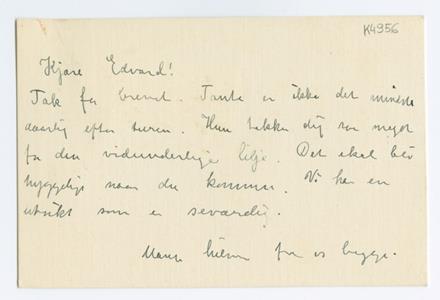 K4956
Kjære Edvard!
Tak for brevet. Tante er ikke det mindste
daarlig efter turen. Hun takker dig saa meget
for den vidunderlige lilje. Det skal bli
hyggeligt naar du kommer. Vi har en
utsikt som er seværdig.
Mange hilsner fra os begge.